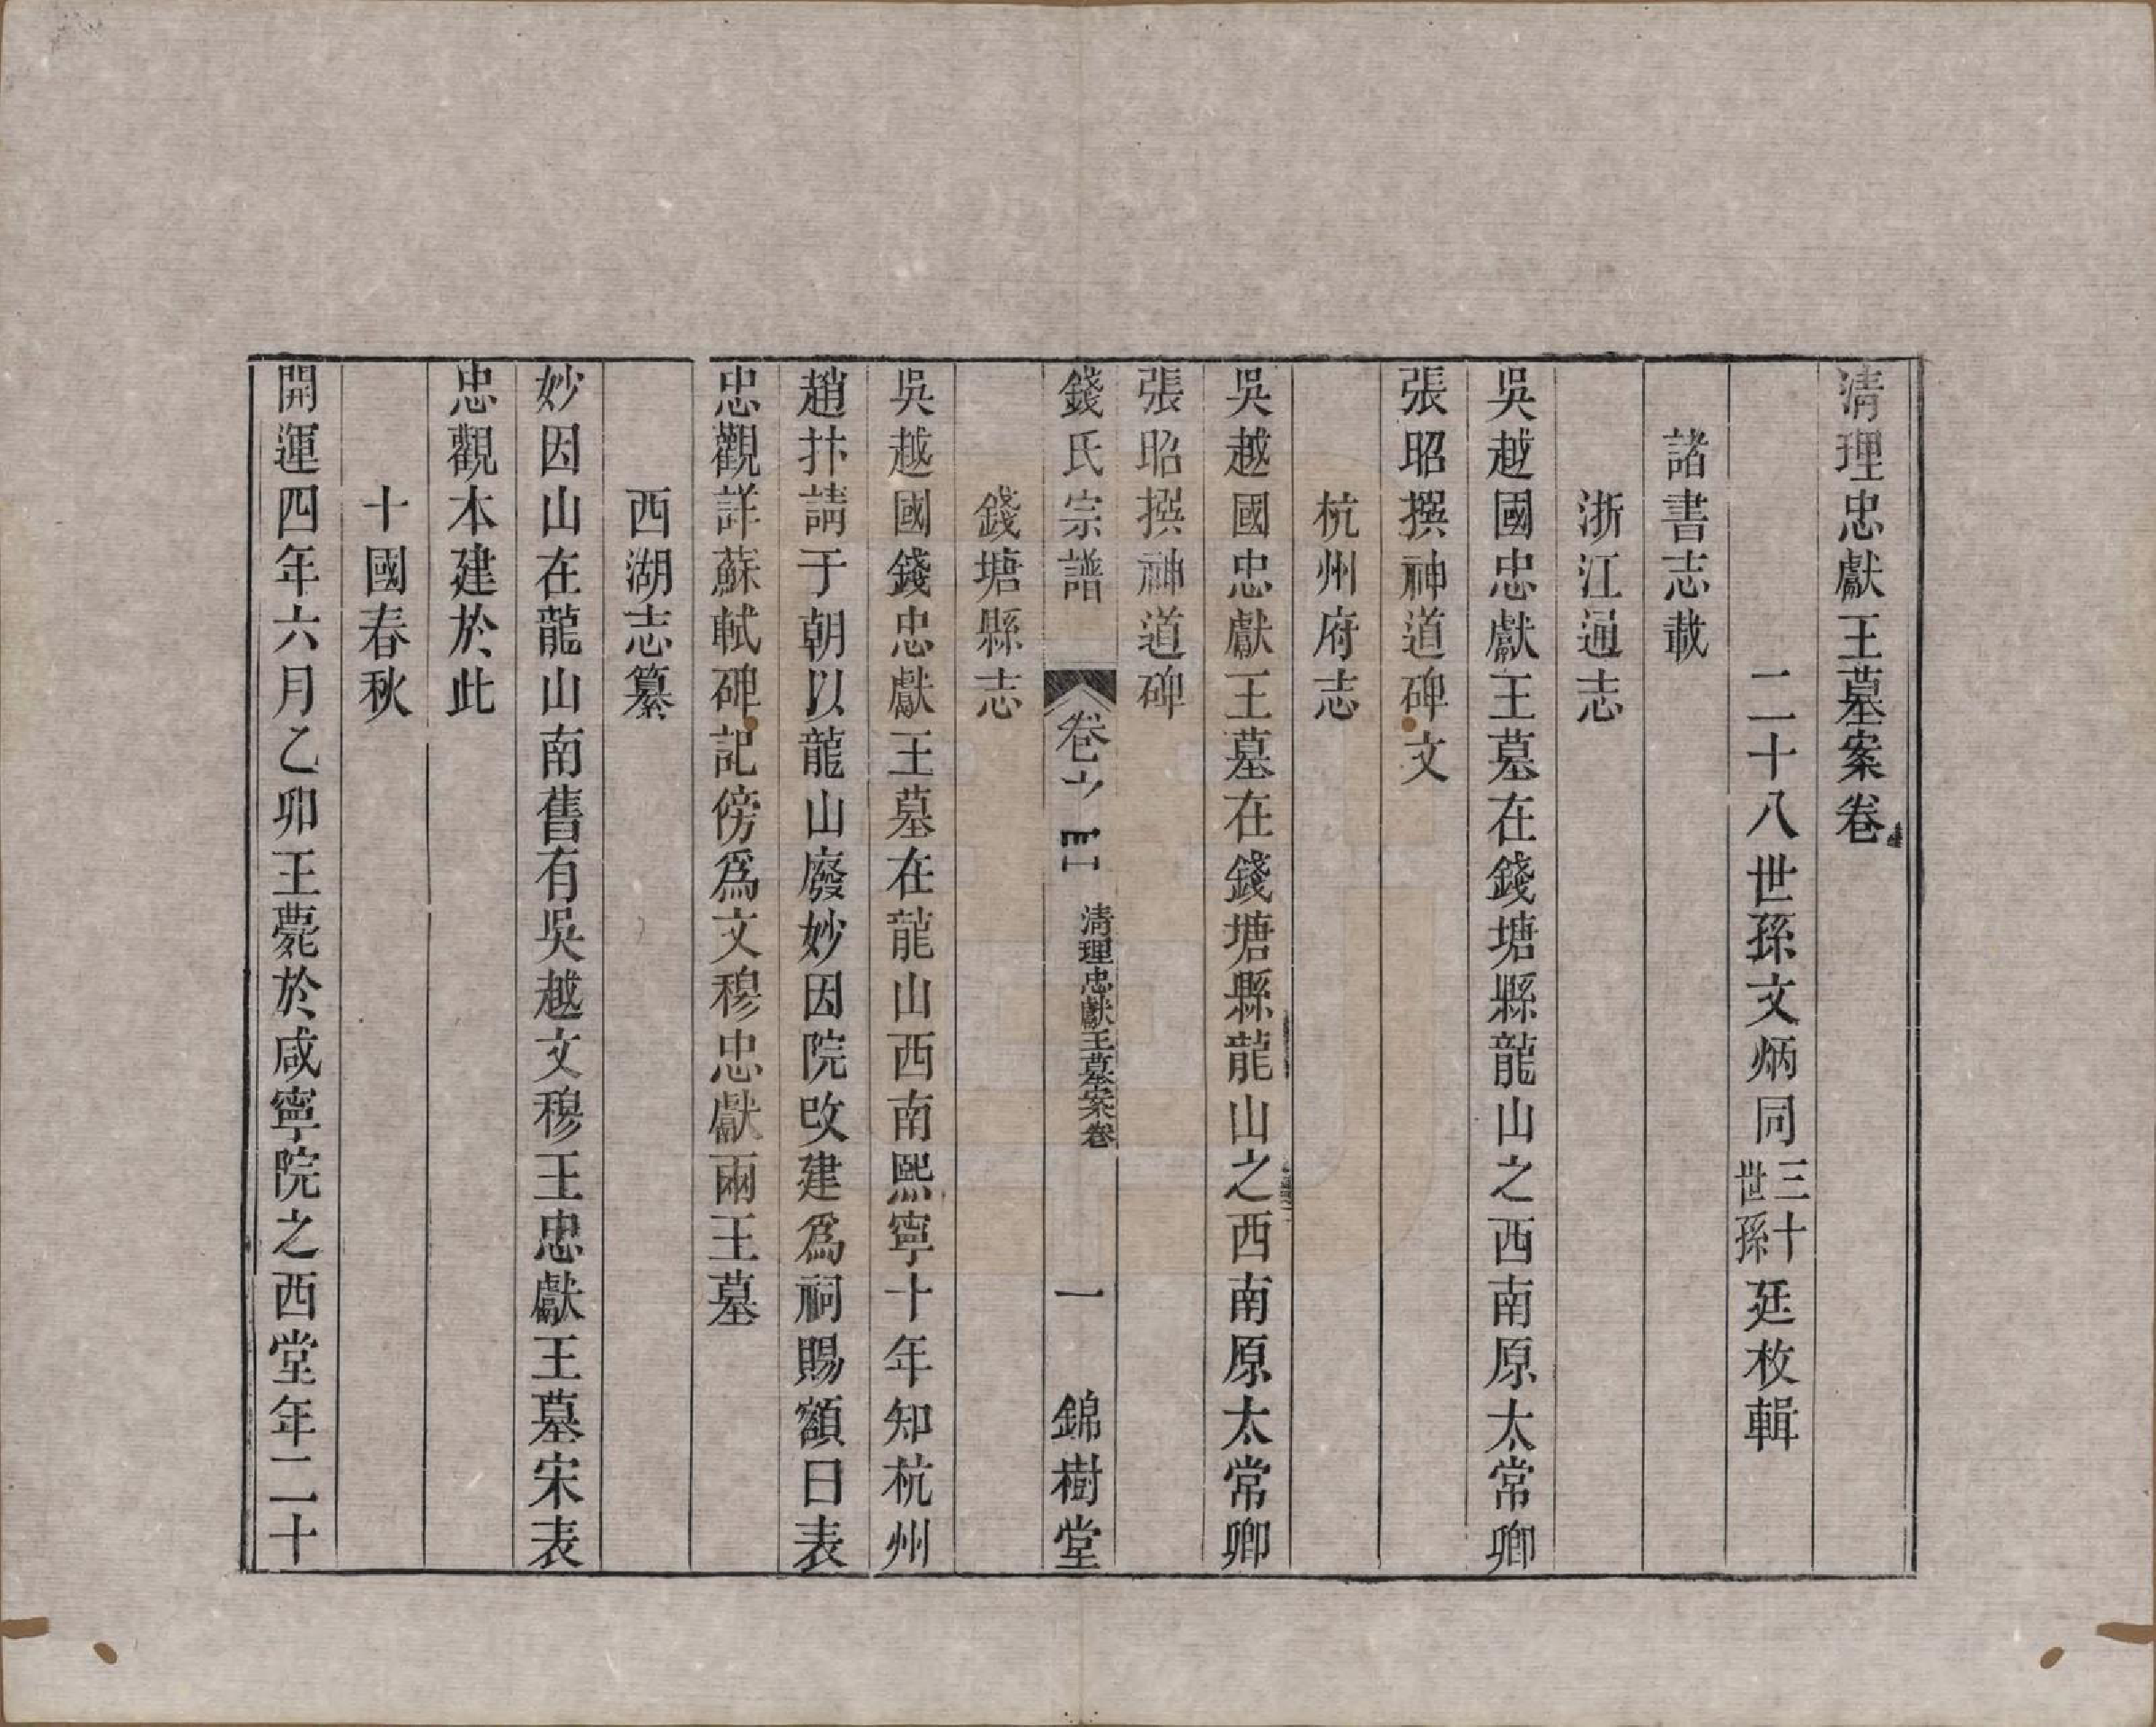 清理忠獻王墓案卷
二十八世孫文炳同三十世孫廷枚輯
諸書志載
浙江通志
吳越國忠獻王墓在錢塘縣龍山之西南原太常卿
張昭撰神道碑文
杭州府志
吳越國忠獻王墓在錢塘縣龍山之西南原太常卿
張昭撰神道碑
錢氏宗譜
卷
清理忠獻王墓案卷
一
錦樹堂
錢塘縣志
吳越國錢忠獻王墓在龍山西南熙寧十年知杭州
趙抃請于朝以龍山廢妙因院改建爲祠賜額曰表
忠觀詳蘇軾碑記傍爲文穆忠獻兩王墓
西湖志纂
妙因山在龍山南舊有吳越文穆王忠獻王墓宋表
忠觀本建於此
十國春秋
開運四年六月乙卯王薨於咸寧院之西堂年二十